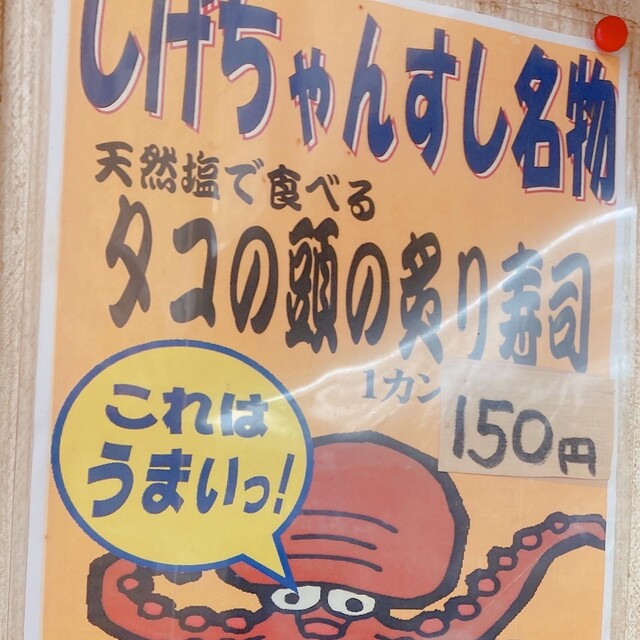 しげちゃんすし名物
天然塩で食べる
タコの頭の炙り寿司
1カン
150円
これは
うまいっ!